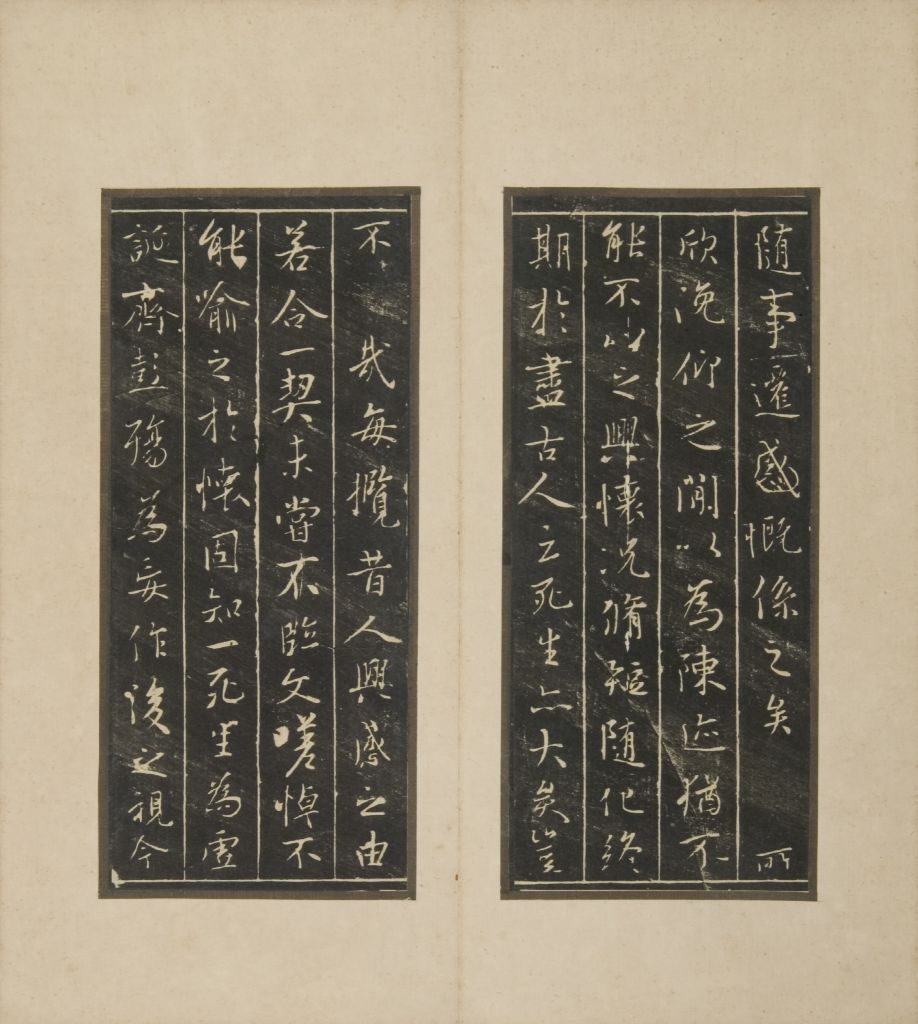 随事遷感慨係之矣 所
欣俛仰之閒以為陳迹猶不
能不以之興懷況脩短随化終
期於盡古人云死生亦大矣豈
不 哉每攬昔人興感之由
若合一契未嘗不臨文嗟悼不
能喻之於懷固知一死生為虛
誕齊彭殤為妄作後之視今